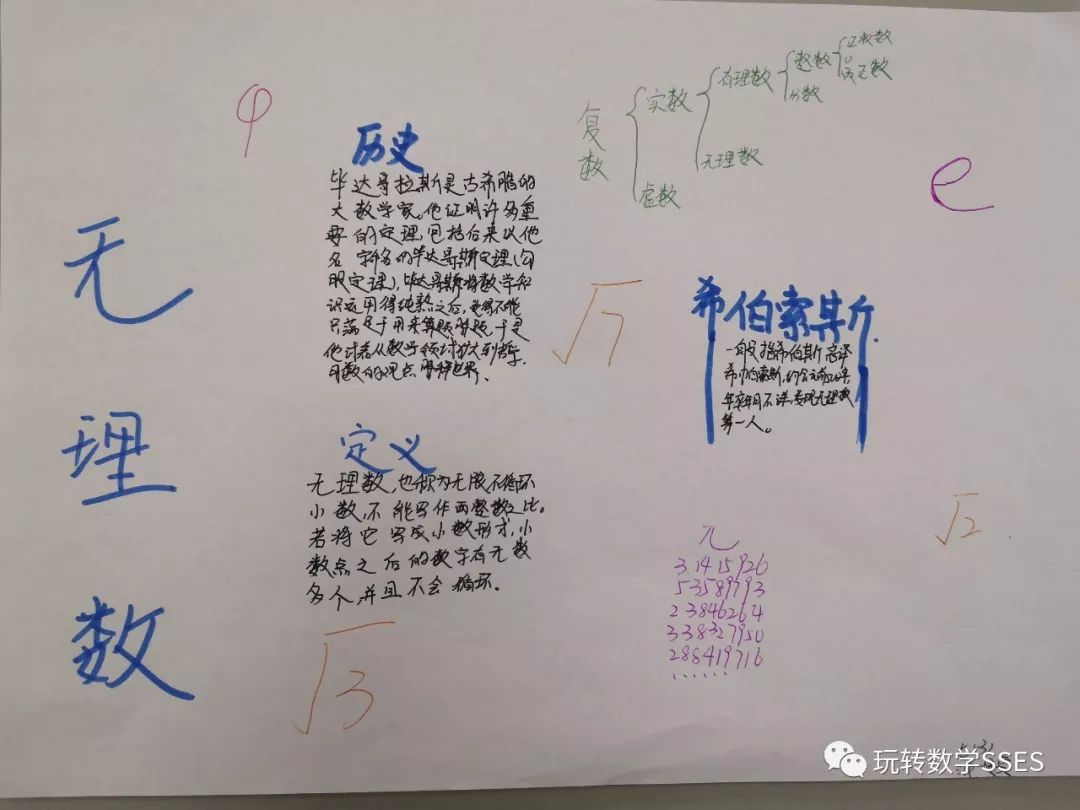 无
理
数
φ
历史
毕达哥拉斯是古希腊的
大数学家。他证明许多重
要的定理,包括后来以他
名字命名的毕达哥斯定理(勾
股定理),毕达哥斯将数学知
识运用得纯熟之后,觉得不能
只满足于用来算题解题,于是
他试着从数学领域扩大到哲学,
用数的观点解释世界.
定义
无理数,也称为无限不循环
小数,不能写作两整数之比。
若将它写成小数形式,小
数点之后的数字有无数
多个,并且不会循环.
√3
复数
实数
虚数
有理数
无理数
整数
分数
正整数
0
负整数
e
√7
希伯索其斤
一般指希伯斯
希帕索斯,约公元前
生卒年月不详,发现无理数
第一人。
√2
π
3.1415926
53589793
23846264
338327950
288419716
......
玩转数学SSES